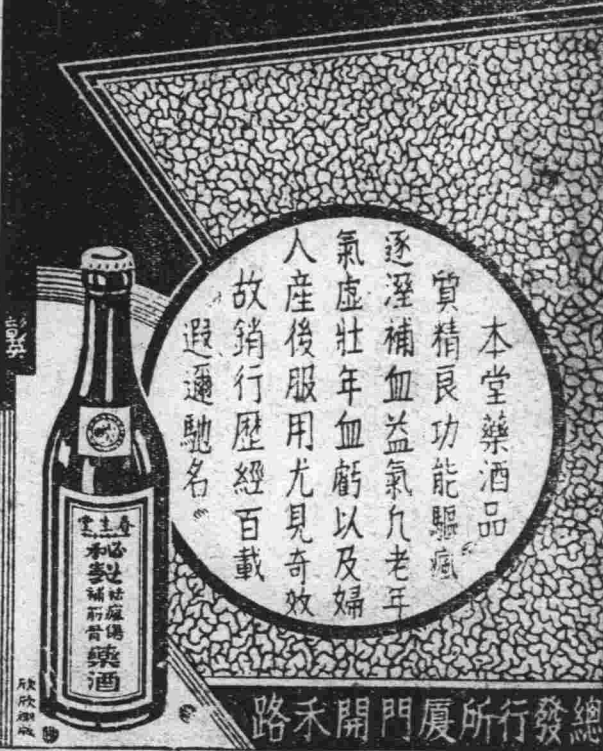 本堂藥酒品
質精良功能驅瘋
逐溼補血益氣凢老年
氣虛壯年血虧以及婦
人産後服用尤見奇效
故銷行歷經百載
遐邇馳名
春生堂
秘製
祛瘋傷
補筋骨
藥酒
總發行所厦門開禾路